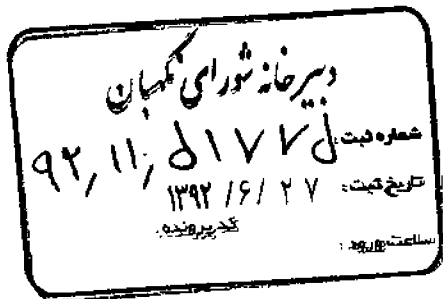 دبیرخانه شورای نگهبان
شماره ثبت:
تاریخ ثبت: ۱۳۹۲/۶/۲۷
کد پرونده:
ساعت ورود: